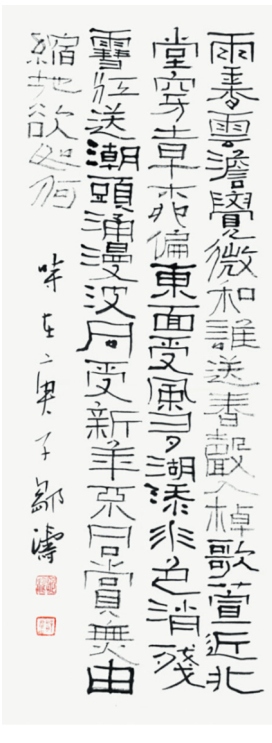 雨香雲澹覺微和誰送春聲入棹歌萱近北
堂穿土早柳偏東面受風多湖添水色消殘
雪江送潮頭涌漫波同受新年不同賞無由
縮地欲如何
時在庚子鄒濤